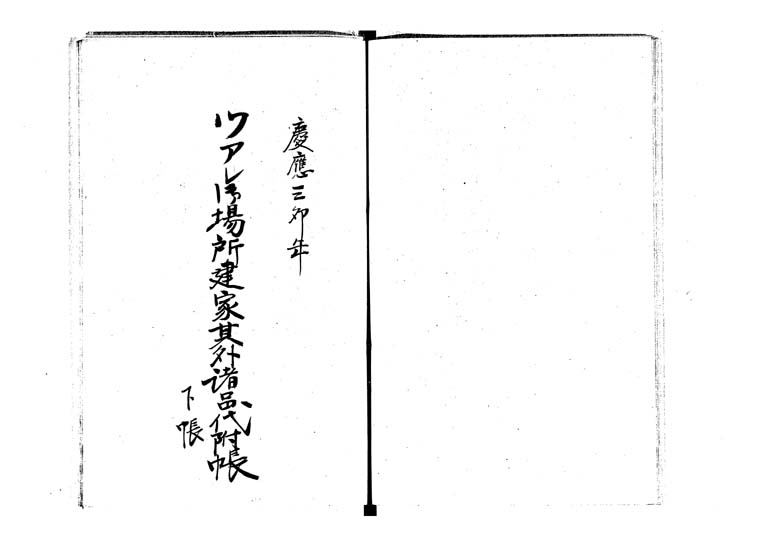 慶應三卯年
場所建家其外諸品代附帳
下帳